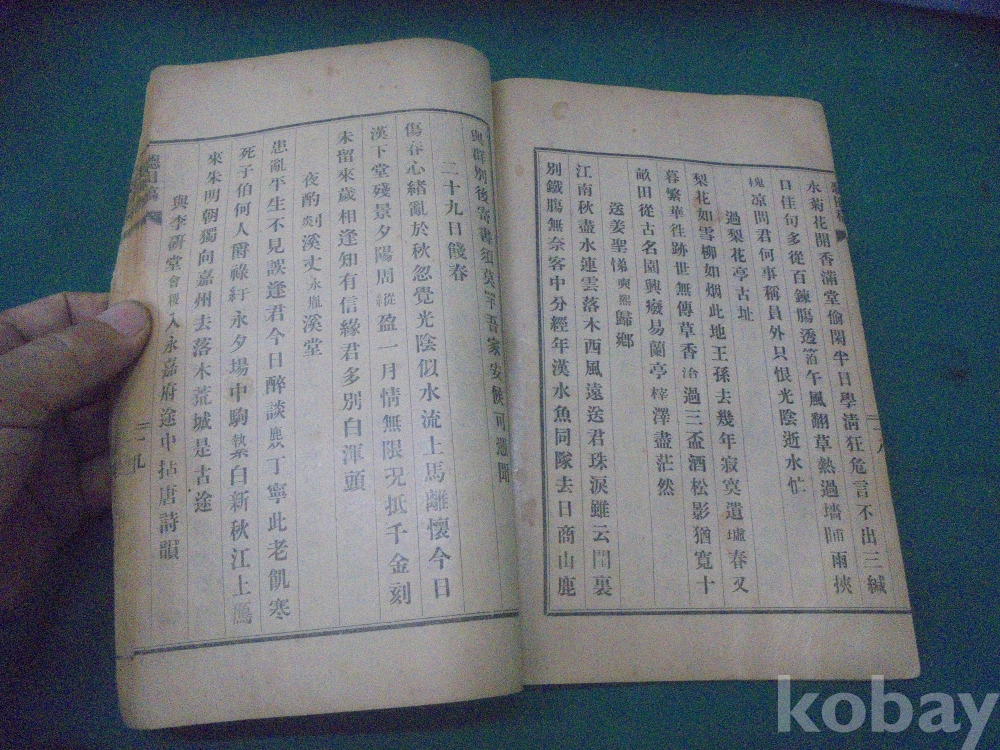 水菊花開香滿堂偷閑半日學淸狂危言不出三緘
口佳句多從百鍊膓透箔午風翻草熱過墻雨挾
槐凉問君何事稱員外只恨光陰逝水忙
過梨花亭古址
梨花如雪柳如烟此地王孫去幾年寂寞遺墟春又
暮繁華徃跡世無傳草香冶過三盃酒松影猶寬十
畝田從古名園興癈易蘭亭梓澤盡茫然
送姜聖悌奭熙歸鄕
江南秋盡水連雲落木西風遠送君珠淚雖云閒裏
別鐵膓無奈客中分經年漢水魚同隊去日商山鹿
與群別後寄書須莫字吾家安候可憑聞
二十九日餞春
傷春心緖亂於秋忽覺光陰似水流上馬離懷今日
漢下堂殘景夕陽周縱盈一月情無限況抵千金刻
未留來歲相逢知有信緣君多別白渾頭
夜酌剡溪丈永胤溪堂
患亂平生不見誤逢君今日醉談麈丁寧此老飢寒
死子伯何人爵祿紆永夕場中駒縶白新秋江上鴈
來朱明朝獨向嘉州去落木荒城是古途
與李硏堂會稷入永嘉府途中拈唐詩韻
kobay